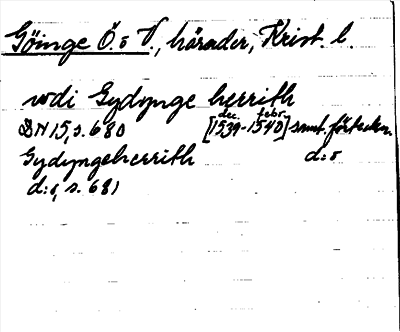 Göinge Ö. o V., härader, Krist. l.
wdi Gydynge herrith
DN 15, s. 680 [dec. 1539-febr. 1540] samt. förteckn.
Gydyngeherrith d:o
d:o, s. 681